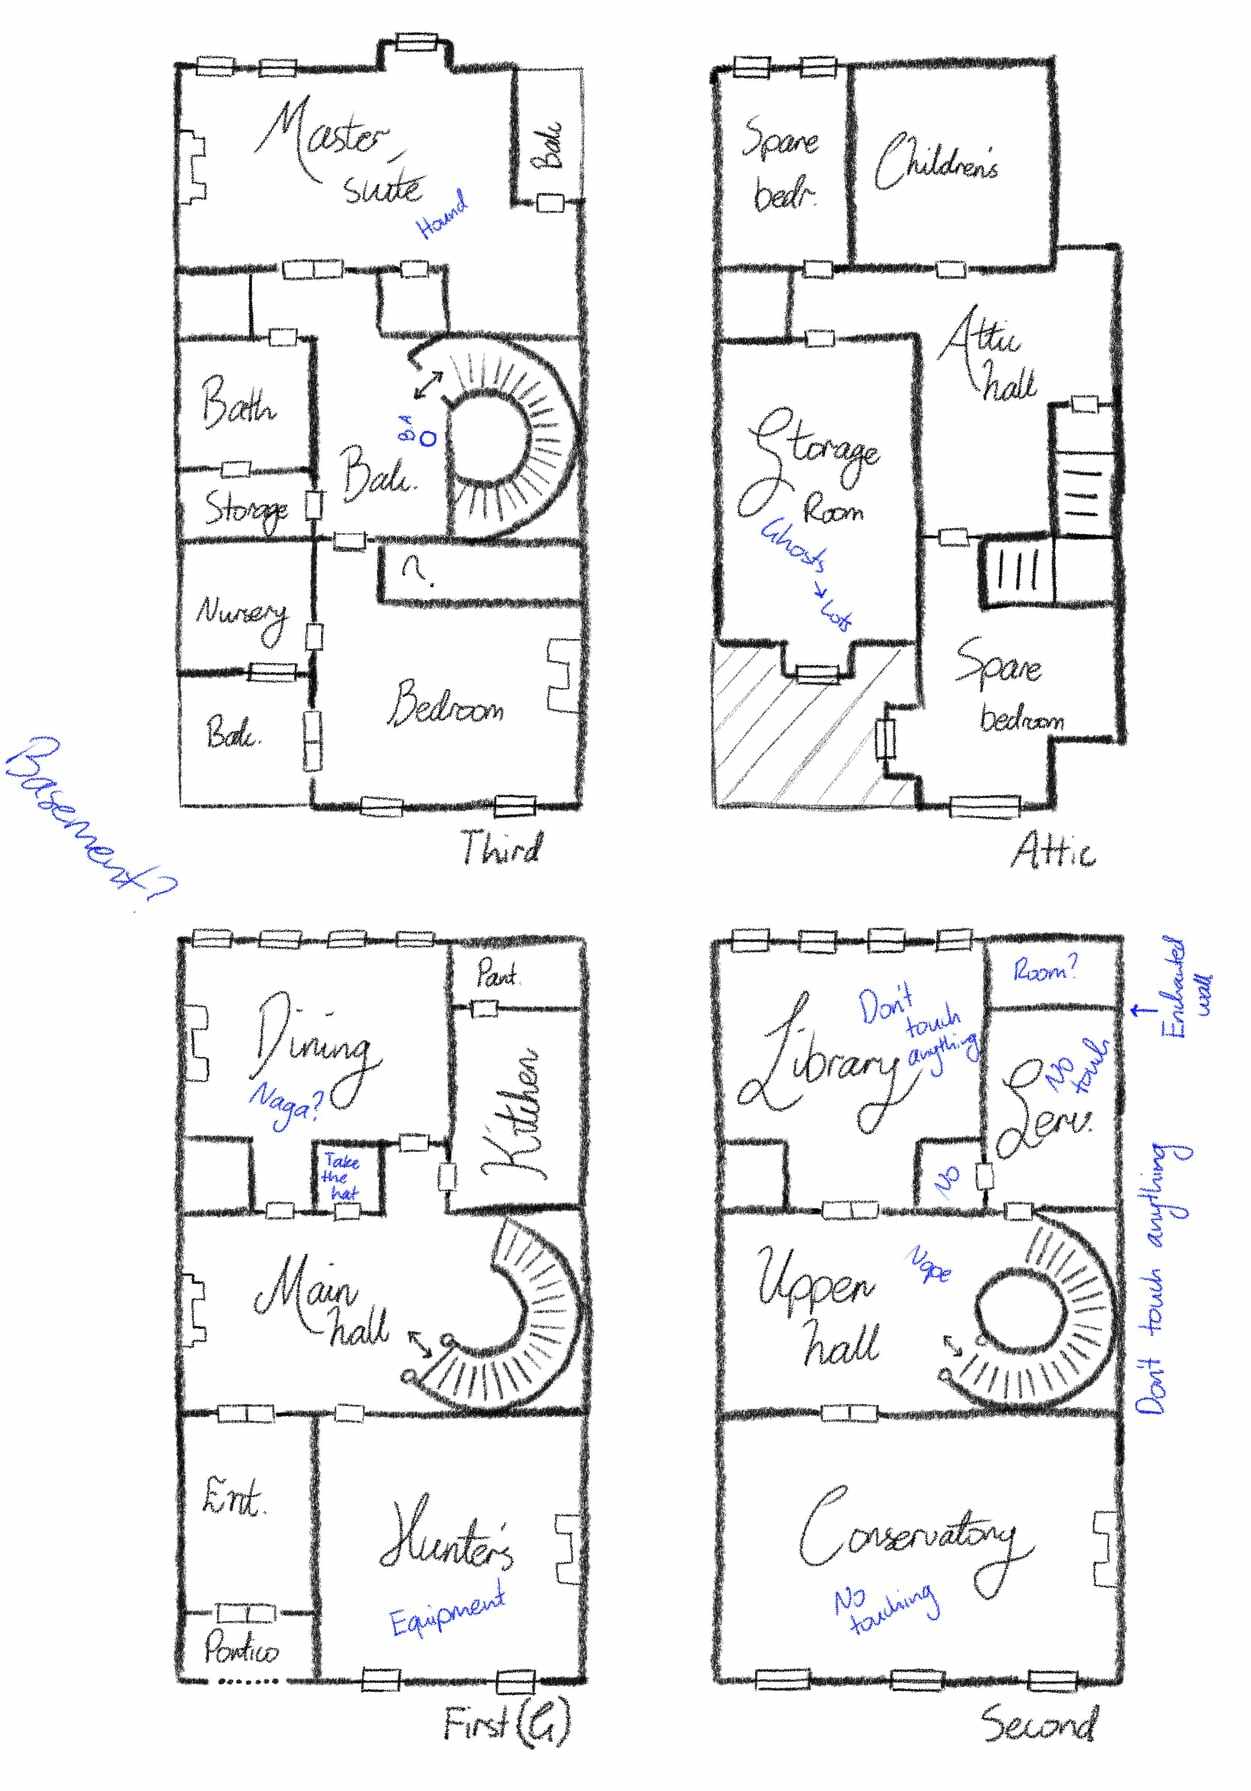 Master
suite
Hound
Balc
Bath
B.A
Balc.
Storage
?
Nursery
Bedroom
Balc.
Third
Spare
bedr.
Children's
Attic
hall
Storage
Room
Ghosts
→ Lots
Spare
bedroom
Attic
Basement?
Pant.
Dining
Naga?
Kitchen
Take
the
hat
Main
hall
Ent.
Hunter's
Equipment
Portico
First (G)
Room?
Enchanted
wall
Library
Don't
touch
anything
No
touch
Serv.
No
Upper
hall
Nope
Don't touch anything
Conservatory
No
touching
Second